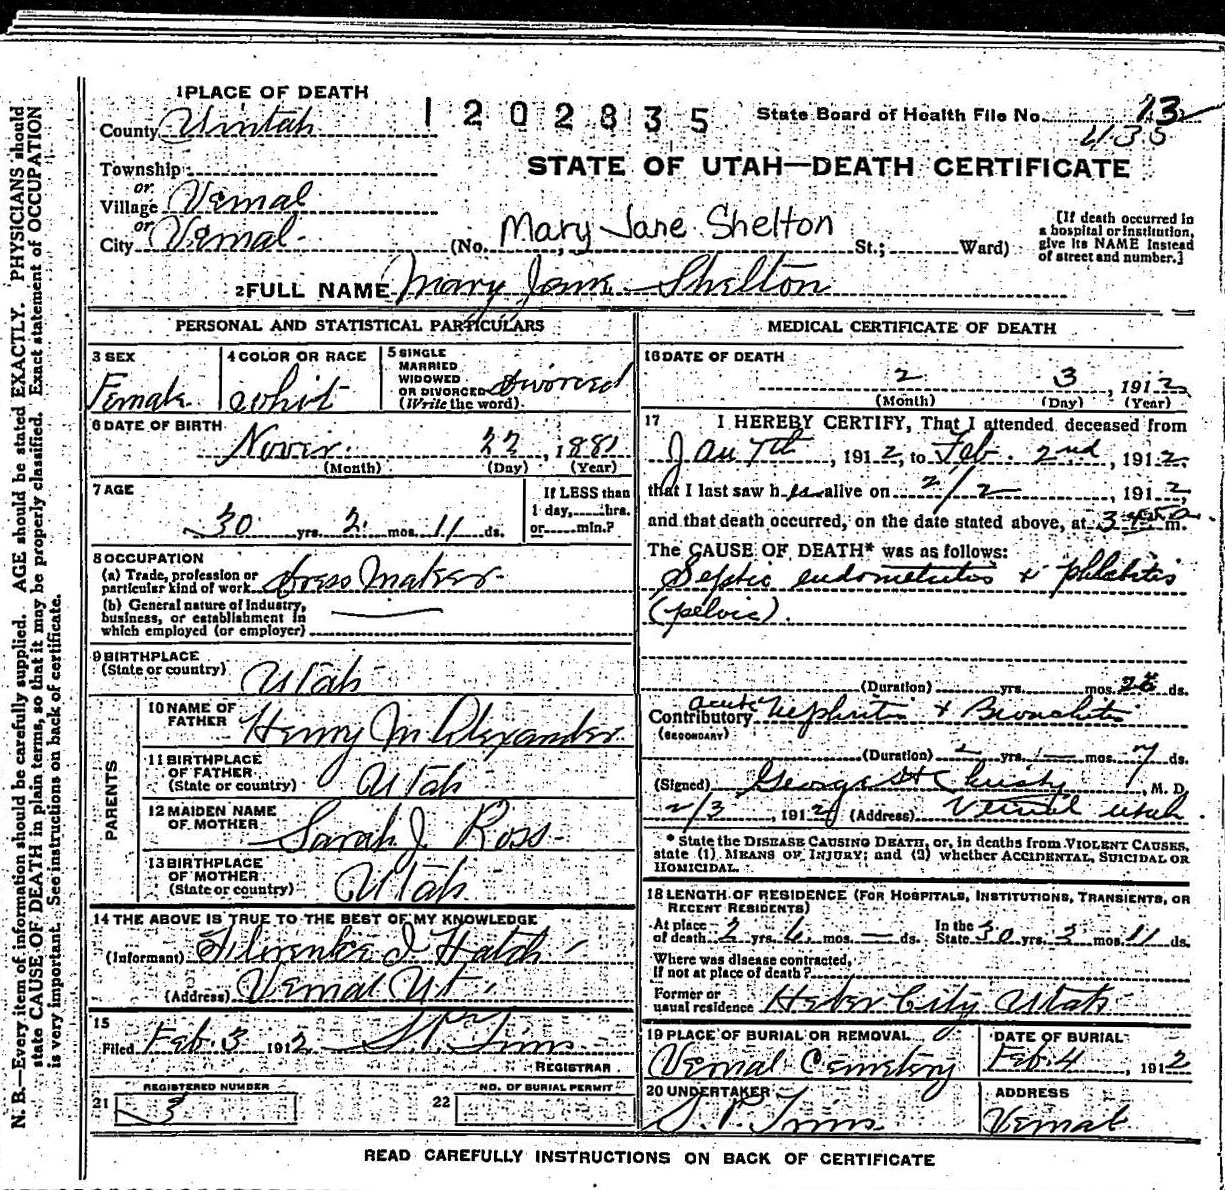 1 PLACE OF DEATH
County Uintah
1202835
State Board of Health File No. 13
435
Township
or
Village Vernal
or
City Vernal
STATE OF UTAH—DEATH CERTIFICATE
(No. Mary Jane Shelton St.; Ward)
[If death occurred in a hospital or institution, give its NAME instead of street and number.]
2 FULL NAME Mary Jane Shelton
PERSONAL AND STATISTICAL PARTICULARS
3 SEX
Female
4 COLOR OR RACE
whit
5 SINGLE
MARRIED
WIDOWED
OR DIVORCED divorced
(Write the word)
6 DATE OF BIRTH
22, 1881
(Month) (Day) (Year)
7 AGE
30 yrs. 2 mos. 11 ds.
If LESS than
1 day, hrs.
or min.?
8 OCCUPATION
(a) Trade, profession or
particular kind of work dress maker
(b) General nature of industry,
business, or establishment in
which employed (or employer)
9 BIRTHPLACE
(State or country) Utah
PARENTS
10 NAME OF
FATHER Henry M Alexander
11 BIRTHPLACE
OF FATHER
(State or country) Utah
12 MAIDEN NAME
OF MOTHER Sarah J. Ross
13 BIRTHPLACE
OF MOTHER
(State or country) Utah
14 THE ABOVE IS TRUE TO THE BEST OF MY KNOWLEDGE
(Informant) Hatch
(Address) Vernal Ut.
15
Filed Feb. 3 1912
REGISTRAR
REGISTERED NUMBER
21 3
NO. OF BURIAL PERMIT
22
MEDICAL CERTIFICATE OF DEATH
16 DATE OF DEATH
2 3, 1912
(Month) (Day) (Year)
17 I HEREBY CERTIFY, That I attended deceased from
Jan 7th, 1912, to Feb. 2nd, 1912,
that I last saw h alive on 2/2, 1912,
and that death occurred, on the date stated above, at 3 m.
The CAUSE OF DEATH* was as follows:
Septic endometritis & phlebitis
(pelvic).
(Duration) yrs. mos. 28 ds.
Contributory acute Nephritis & Bronchitis
(SECONDARY)
(Duration) – yrs. – mos. 7 ds.
(Signed) George H Christy, M. D.
2/3, 1912 (Address) Vernal Utah
* State the DISEASE CAUSING DEATH, or, in deaths from VIOLENT CAUSES,
state (1) MEANS OF INJURY; and (2) whether ACCIDENTAL, SUICIDAL OR
HOMICIDAL.
18 LENGTH OF RESIDENCE (FOR HOSPITALS, INSTITUTIONS, TRANSIENTS, OR
RECENT RESIDENTS)
At place
of death 2 yrs. 6 mos. — ds.
In the
State 30 yrs. 2 mos. 11 ds.
Where was disease contracted,
If not at place of death?
Former or
usual residence Heber City Utah
19 PLACE OF BURIAL OR REMOVAL
Vernal Cemetery
DATE OF BURIAL
Feb. 4, 1912
20 UNDERTAKER
ADDRESS
Vernal
READ CAREFULLY INSTRUCTIONS ON BACK OF CERTIFICATE
N. B.—Every item of information should be carefully supplied. AGE should be stated EXACTLY. PHYSICIANS should
state CAUSE OF DEATH in plain terms, so that it may be properly classified. Exact statement of OCCUPATION
is very important. See instructions on back of certificate.